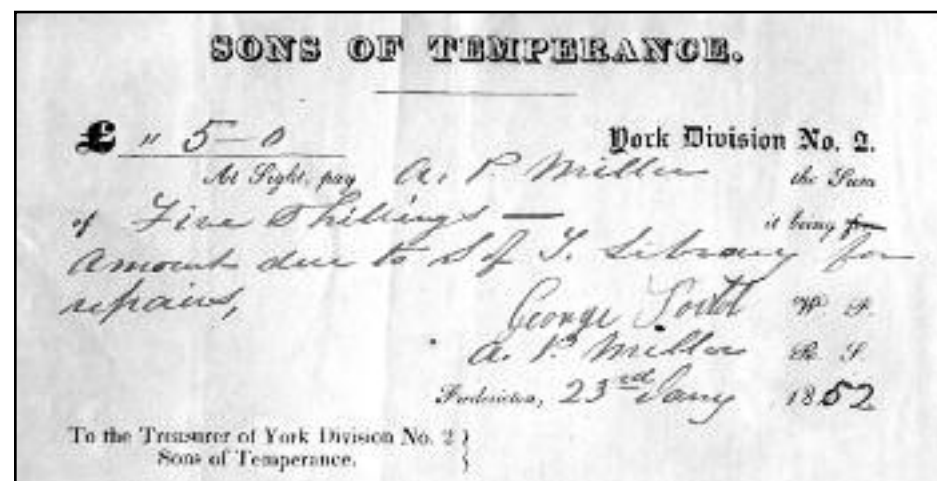 SONS OF TEMPERANCE.
£ " 5-0 York Division No. 2.
At Sight, pay A. P. Miller the Sum
of Five Shillings — it being for
Amount due to S of T. Library for
repairs,
George Todd W. P.
A. P. Miller R. S.
Fredericton, 23rd Jany 1852
To the Treasurer of York Division No. 2 }
Sons of Temperance.